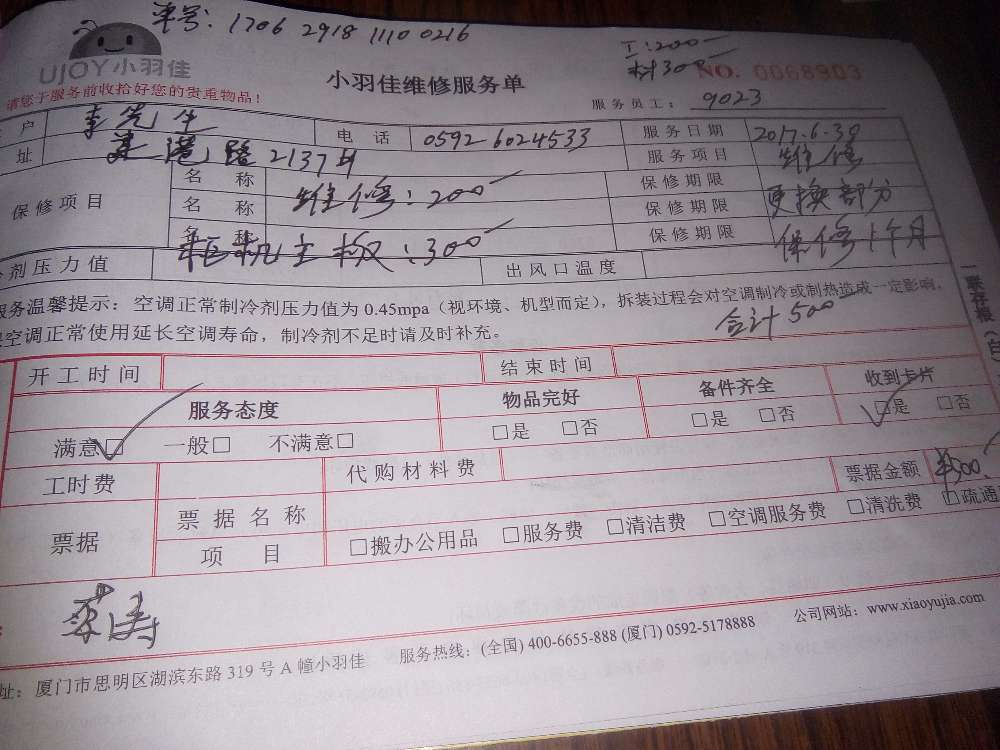 单号: 1706 2918 1110 0216
工:200
材300
UJOY小羽佳
NO. 0068903
请您于服务前收拾好您的贵重物品!
小羽佳维修服务单
服务员工: 9023
户 李先生 电话 0592-6024533 服务日期 2017.6.30
址 港路2137# 服务项目 维修
保修项目 名称 维修:200 保修期限 更换部分
名称 保修期限
名称 柜机主板:300 保修期限 保修1个月
剂压力值 出风口温度
服务温馨提示:空调正常制冷剂压力值为 0.45mpa(视环境、机型而定),拆装过程会对空调制冷或制热造成一定影响,
空调正常使用延长空调寿命,制冷剂不足时请及时补充。
合计500
一联存根(白
开工时间 结束时间
服务态度 物品完好 备件齐全 收到卡片
满意☑ 一般□ 不满意□ □是 □否 □是 □否 ☑是 □否
工时费 代购材料费 票据金额 ¥500
票据 票据名称
项目 □搬办公用品 □服务费 □清洁费 □空调服务费 □清洗费 □疏通
李涛
址:厦门市思明区湖滨东路 319 号 A 幢小羽佳 服务热线:(全国) 400-6655-888 (厦门) 0592-5178888 公司网站:www.xiaoyujia.com